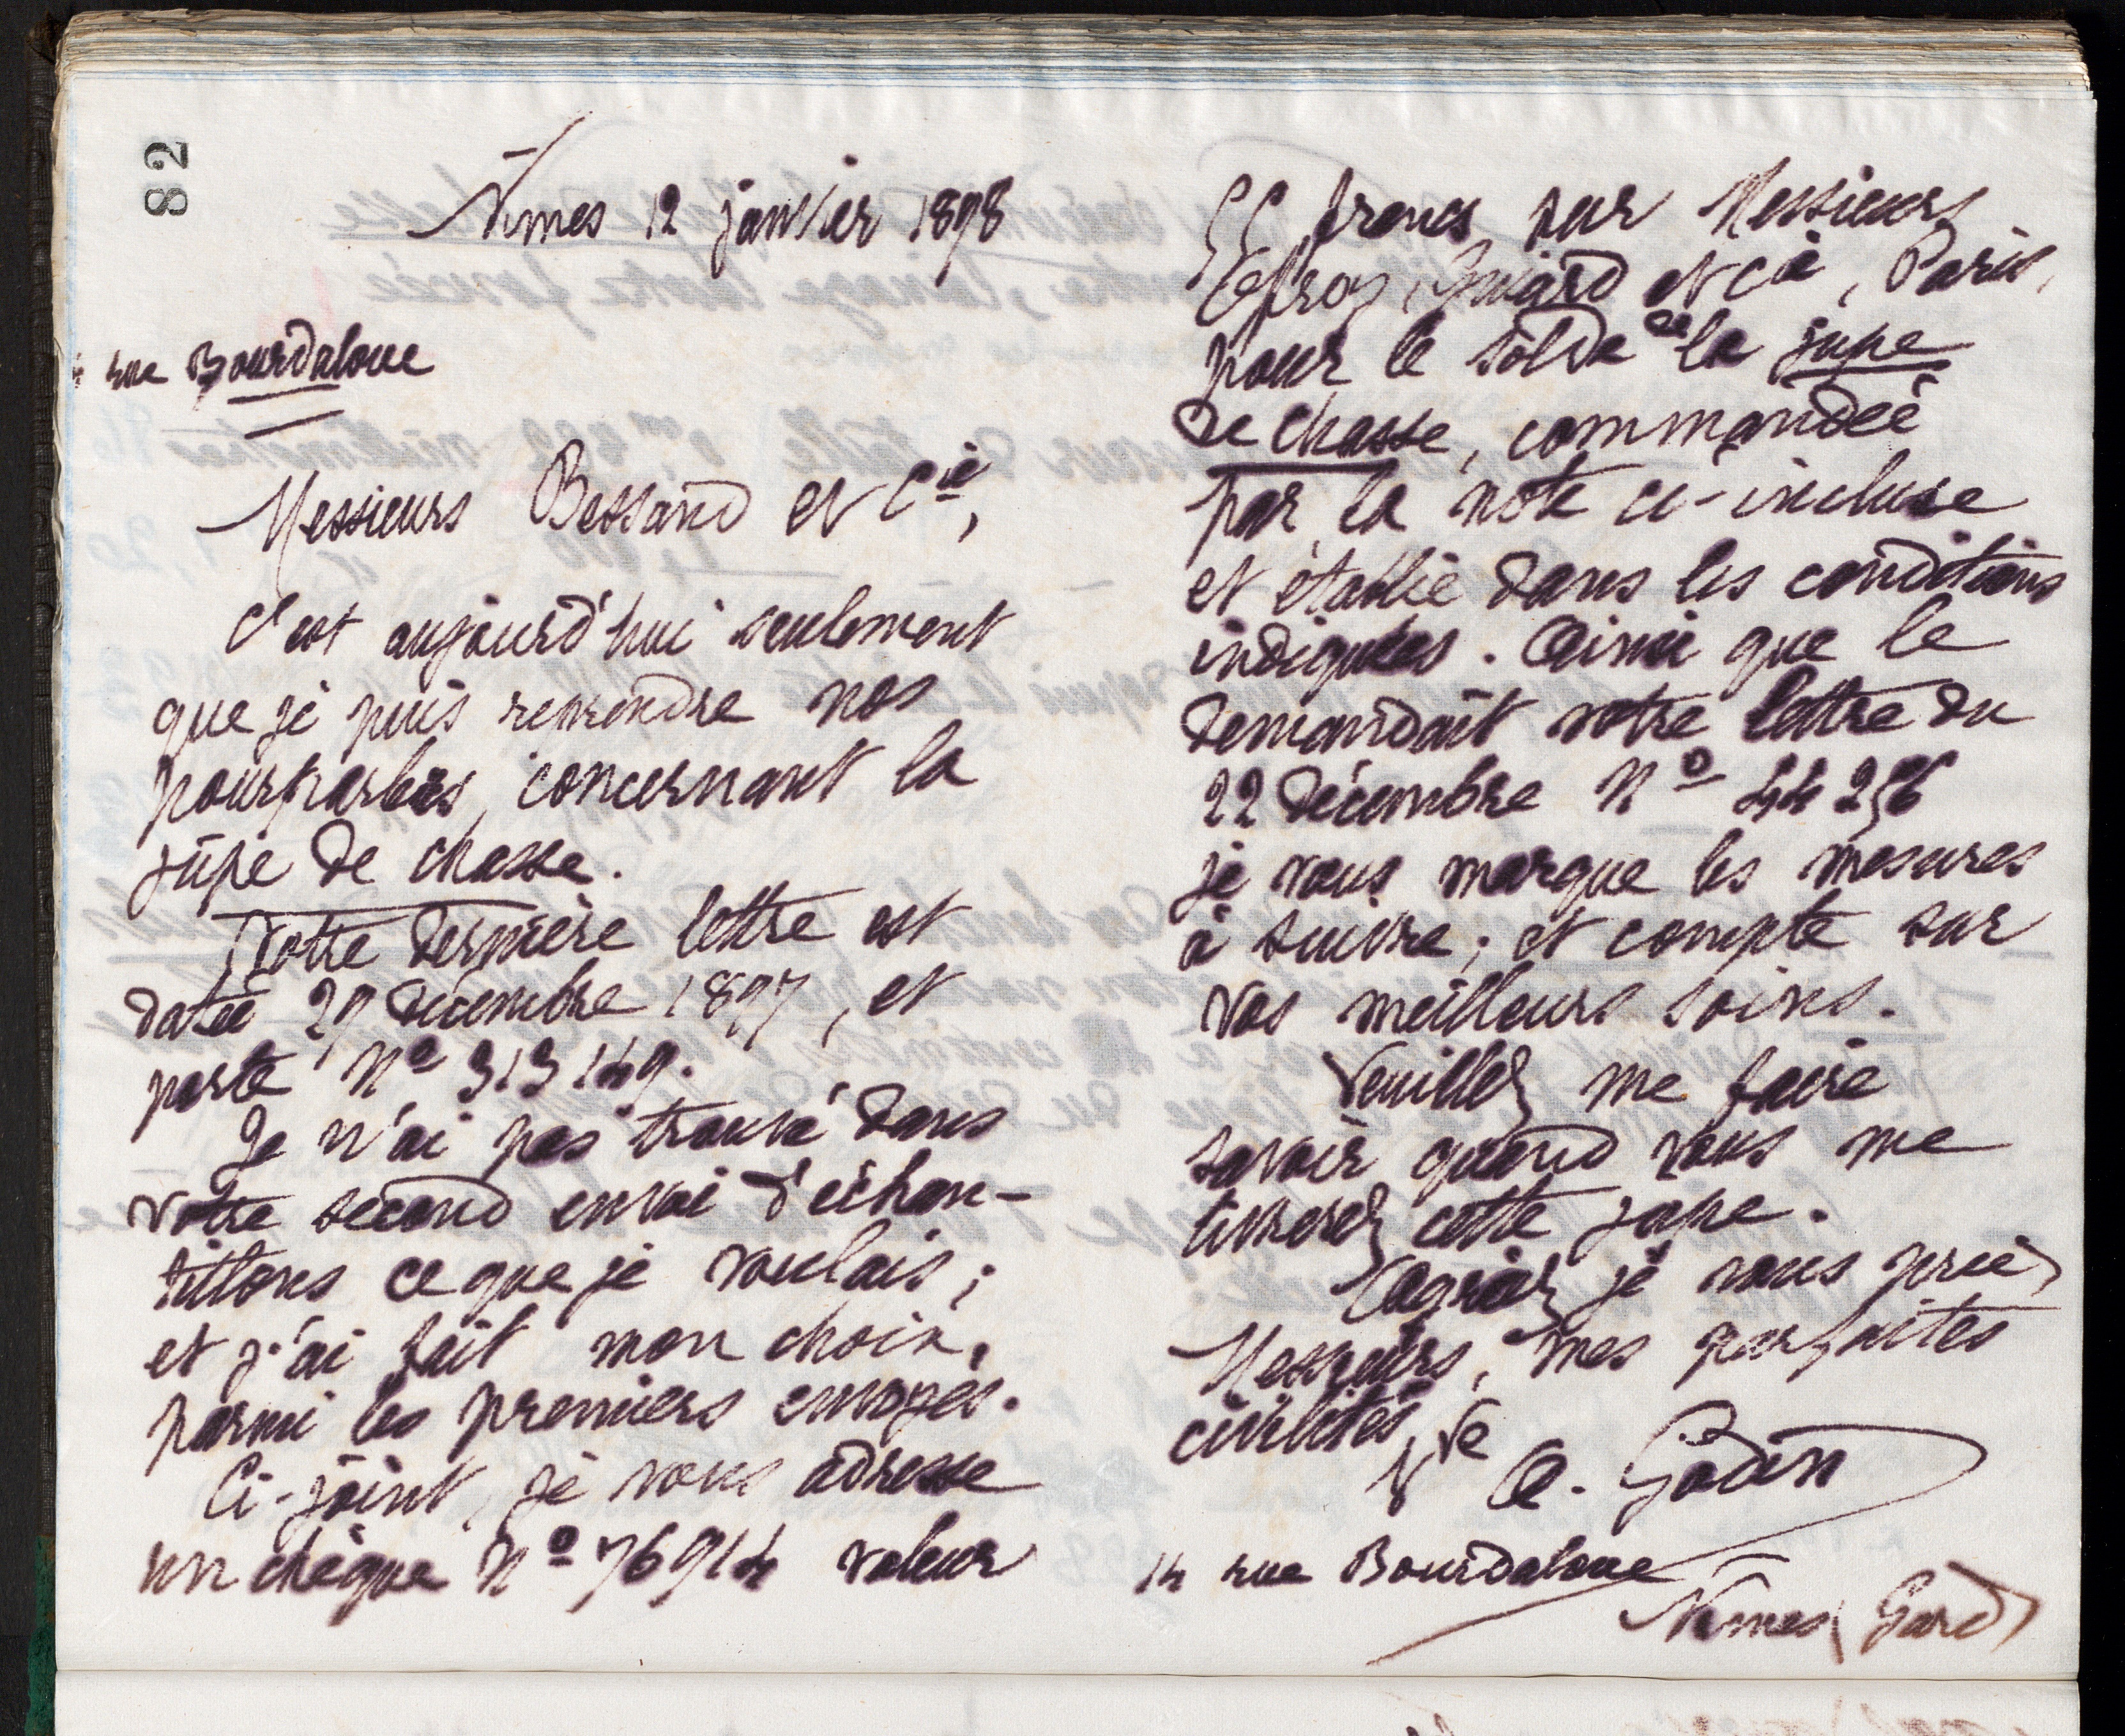 82
Nîmes 12 janvier 1898
rue Bourdaloue
Messieurs Bessand et Cie,
C'est aujourd'hui seulement
que je puis reprendre nos
pourparlers, concernant la
jupe de chasse.
Votre dernière lettre est
datée 29 décembre 1897, et
porte No 313149.
Je n'ai pas trouvé dans
votre second envoi d'échan-
tillons ce que je voulais ;
et j'ai fait mon choix,
parmi les premiers envoyés.
Ci-joint, je vous adresse
un chèque No 76914 valeur
francs sur Messieurs
et Cie, Paris,
pour le solde de la jupe
de chasse, commandée
par la note ci-incluse
et établie dans les conditions
indiquées. Ainsi que le
demandait votre lettre du
22 décembre No 44256
je vous marque les mesures
à suivre ; et compte sur
vos meilleurs soins.
Veuillez me faire
savoir quand vous me
livrerez cette jupe.
Agréez je vous prie,
Messieurs, mes parfaites
civilités
Vve A. Godin
14 rue Bourdaloue
Nîmes (Gard)